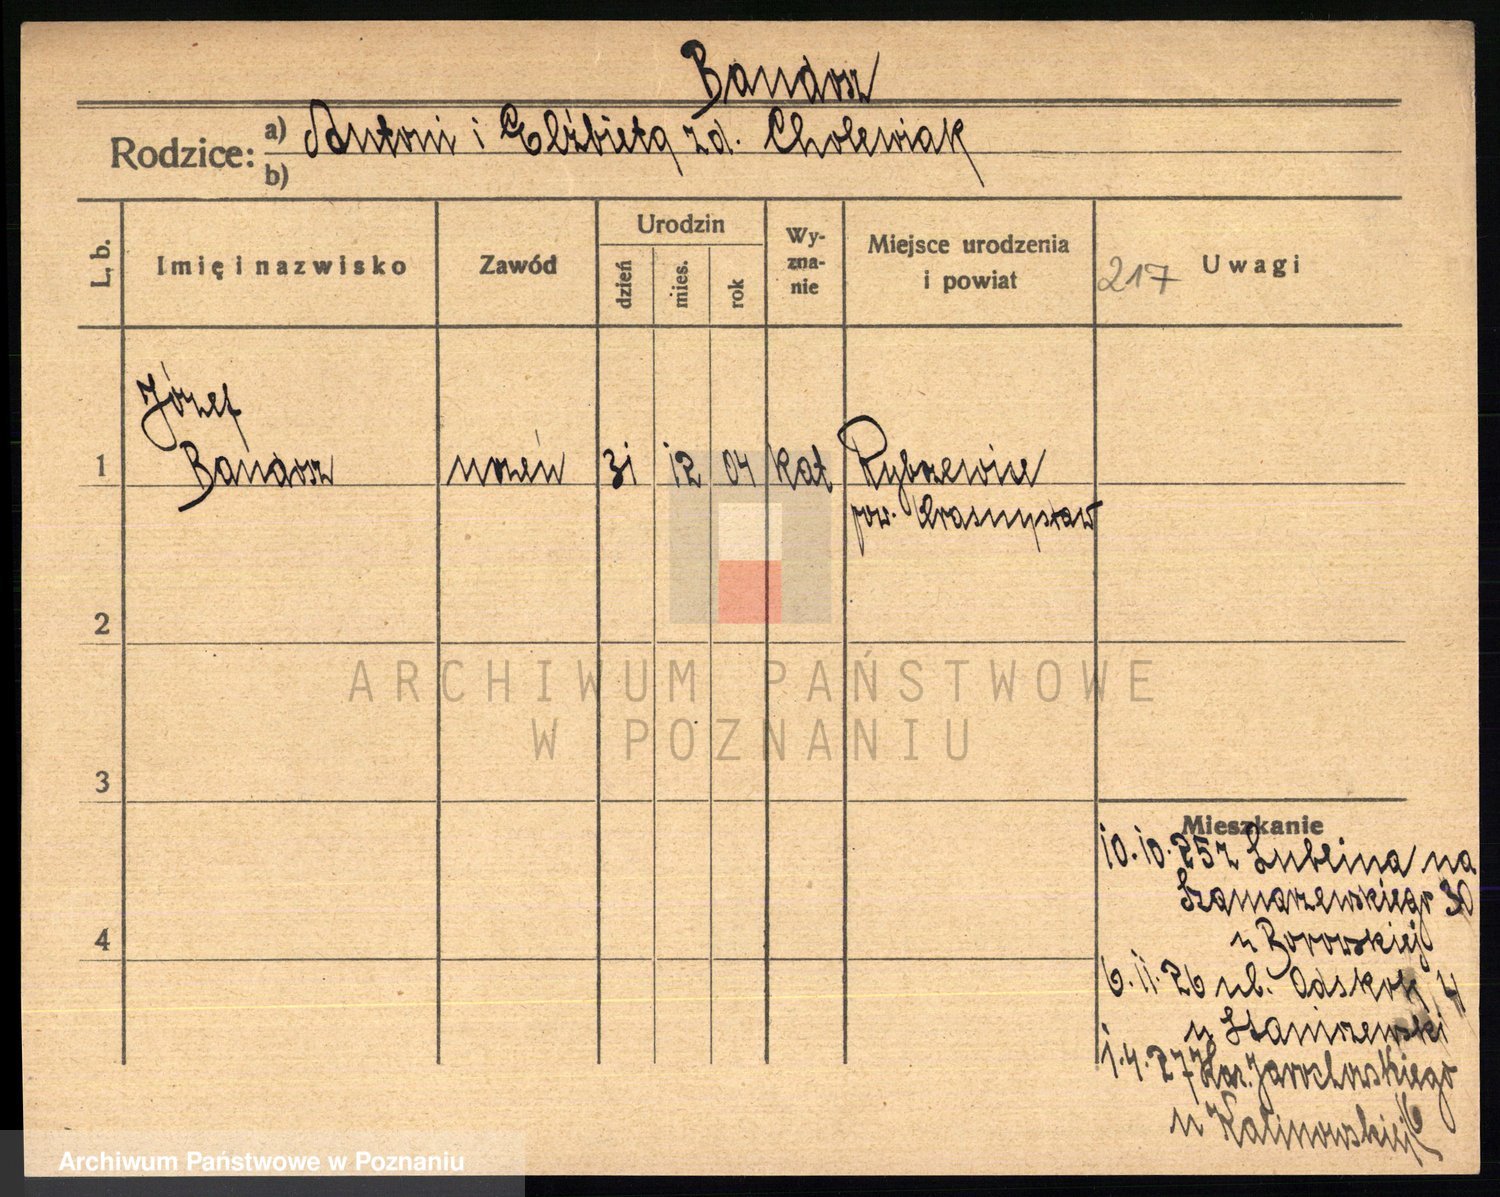 Bandosz
Rodzice:
a) Antoni i Elżbieta zd. Cholewiak
b)
L. b.
Imię i nazwisko
Zawód
Urodzin
dzień
mies.
rok
Wy-
zna-
nie
Miejsce urodzenia
i powiat
217
Uwagi
Józef
1
Bandosz
uczeń
31
12
04
kat
Rybczewice
pow. Krasnystaw
2
ARCHIWUM PAŃSTWOWE
W POZNANIU
3
Mieszkanie
10.10.25 z Lublina na
Szamarzewskiego 30
4
u Borowskiej
6.11.26 ul.
u Staniszewski
1.4.27 Jarochowskiego
u Kalinowskiej
Archiwum Państwowe w Poznaniu